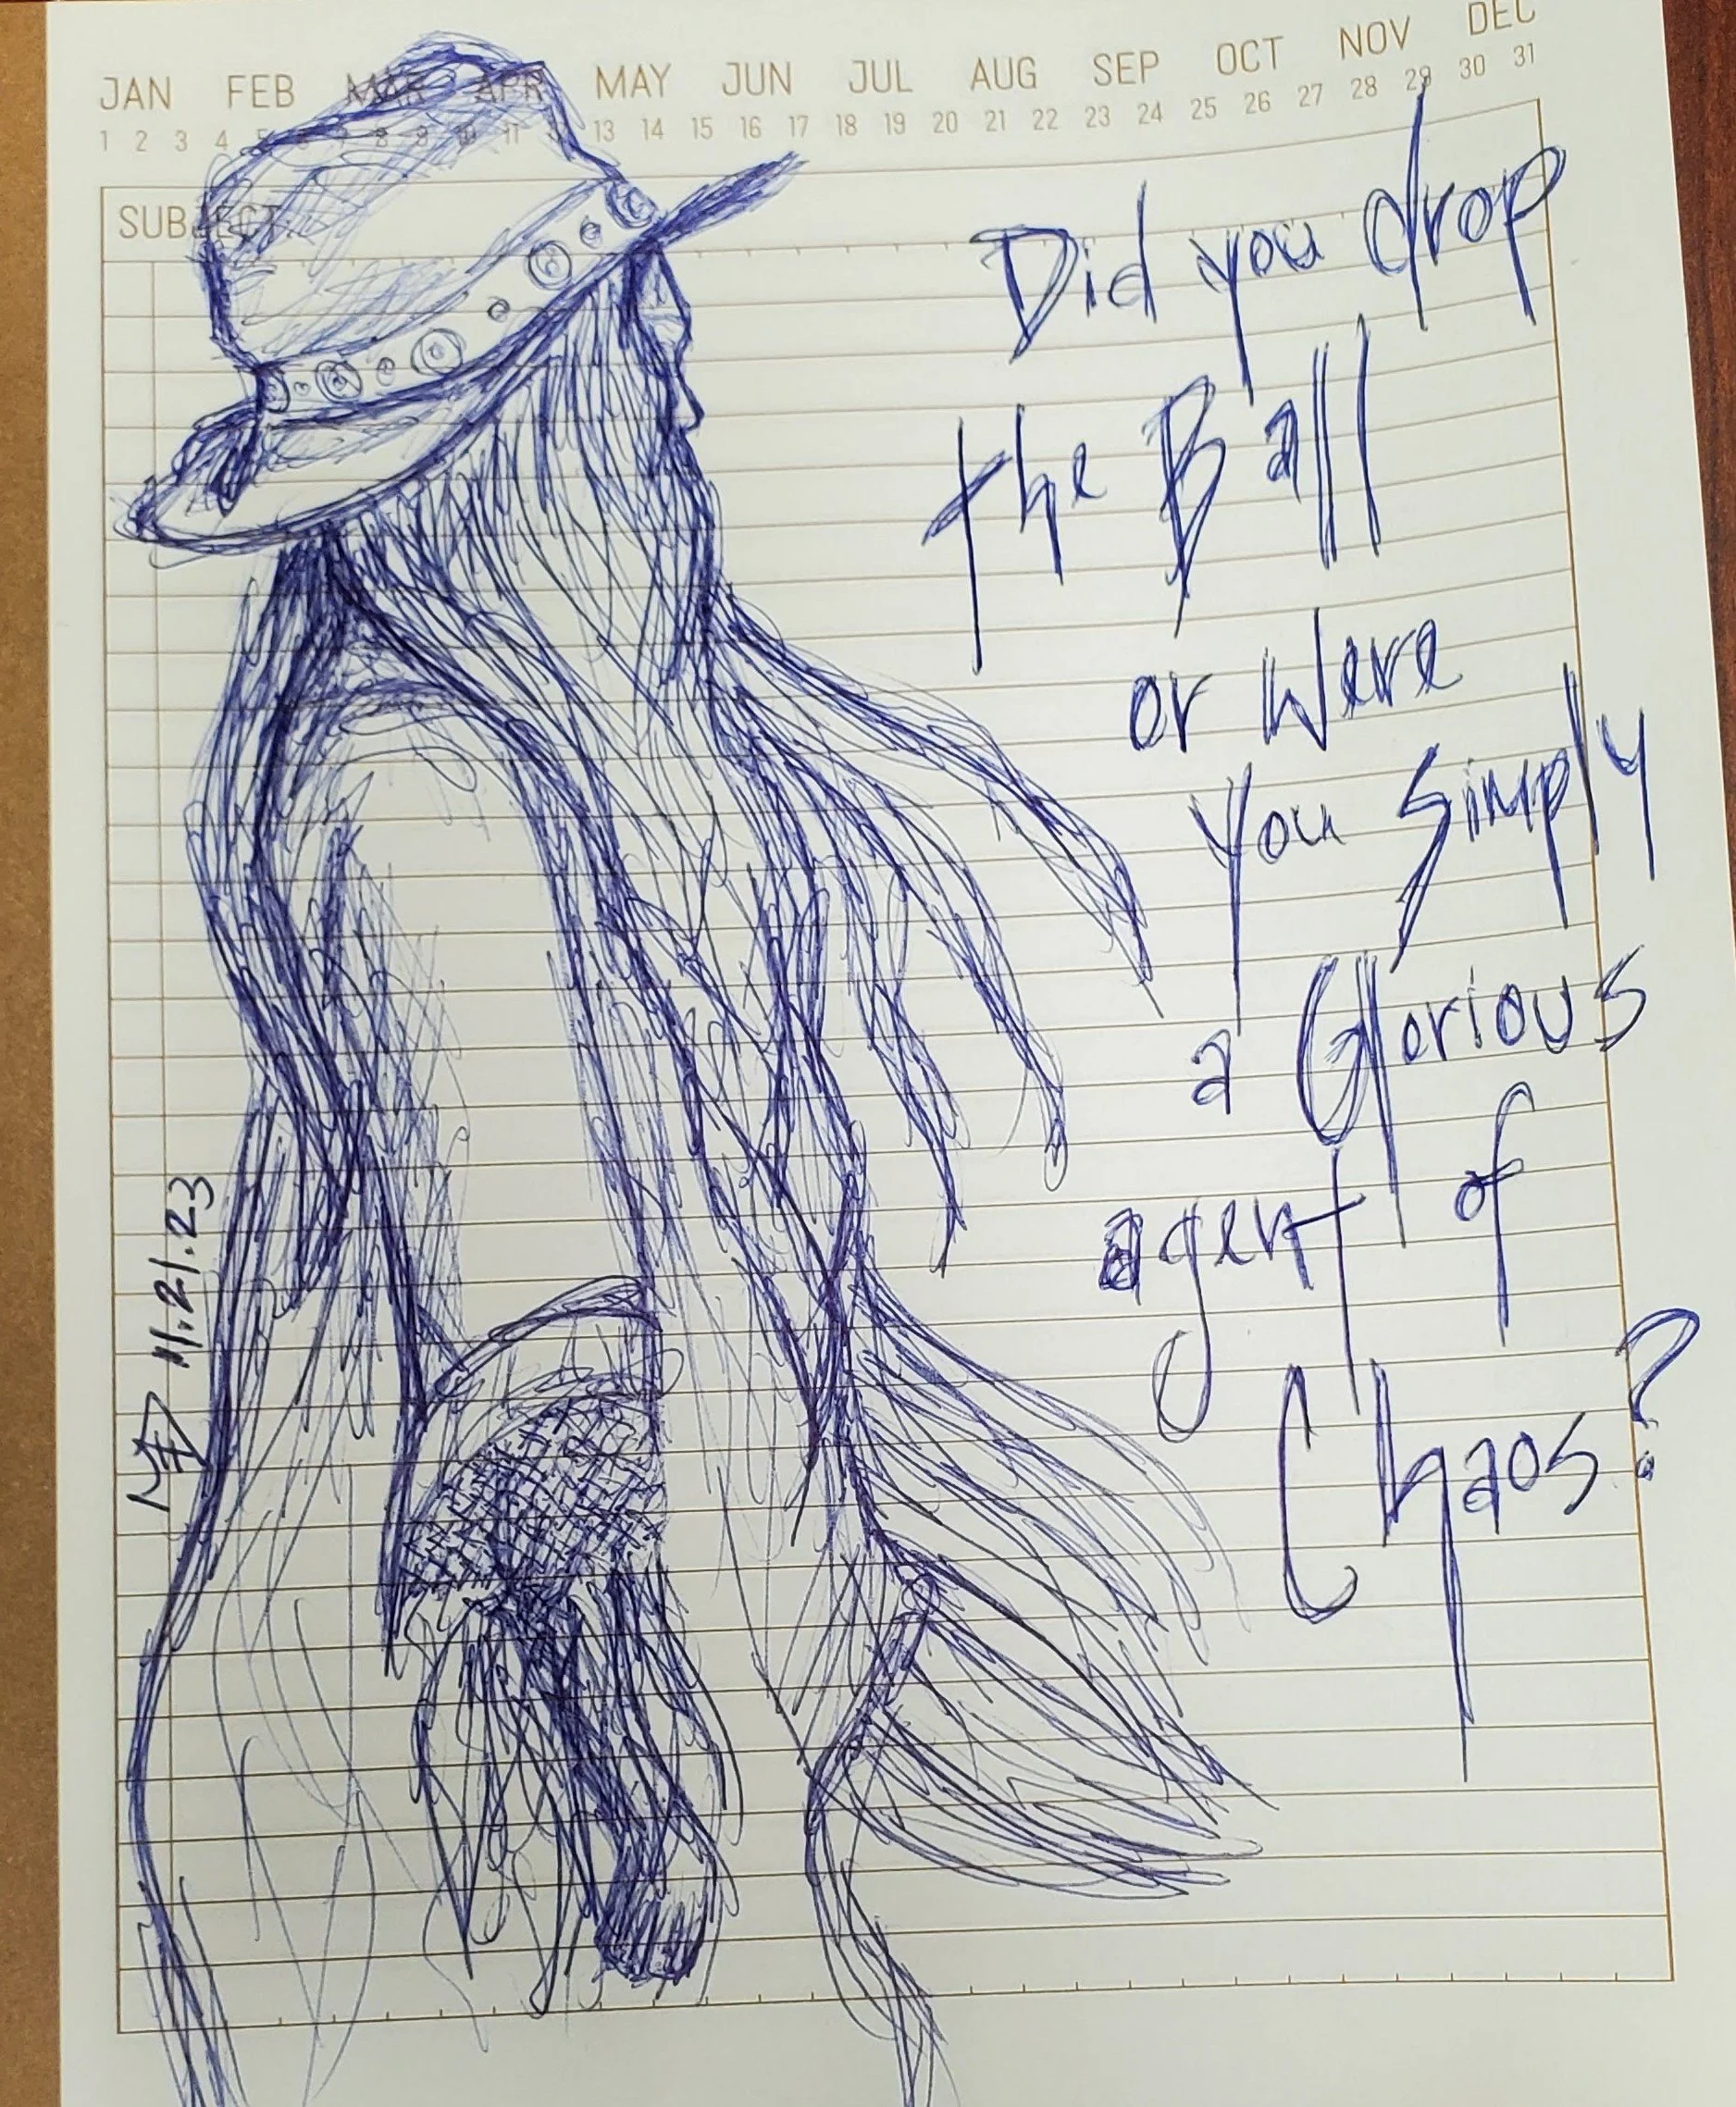 JAN FEB MAR APR MAY JUN JUL AUG SEP OCT NOV DEC
1 2 3 4 5 6 7 8 9 10 11 12 13 14 15 16 17 18 19 20 21 22 23 24 25 26 27 28 29 30 31
SUBJECT.
Did you drop
the Ball
or Were
you Simply
a Glorious
agent of
Chaos?
11.21.23